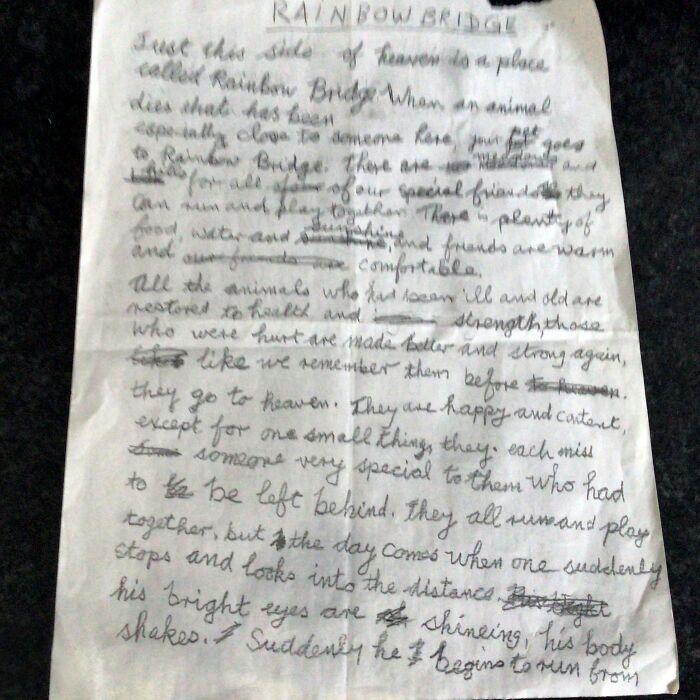 RAINBOW BRIDGE
Just this side of heaven is a place
called Rainbow Bridge. When an animal
dies that has been
especially close to someone here, your pet goes
to Rainbow Bridge. There are meadows and
hills for all of our special friends they
can run and play together. There is plenty of
food, water and sunshine, and friends are warm
and comfortable.
All the animals who had been ill and old are
restored to health and strength, those
who were hurt are made better and strong again,
like we remember them before
they go to heaven. They are happy and content,
except for one small thing, they. each miss
someone very special to them who had
to be left behind. They all run and play
together, but the day comes when one suddenly
stops and looks into the distance.
his bright eyes are shineing, his body
shakes. Suddenly he begins to run from